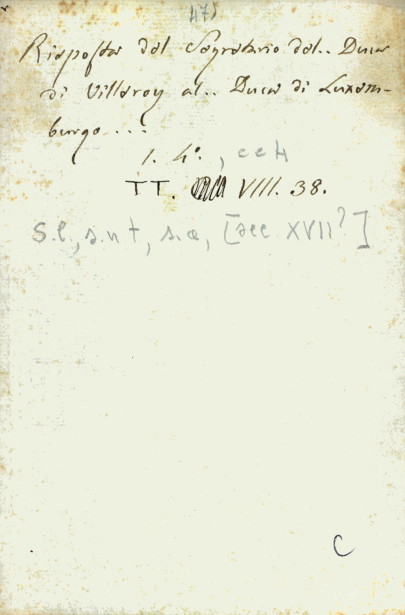 475
Risposta del Segretario del.. Duca
di Villeroy al.. Duca di Luxem-
burgo...
1. 4°. , cc 4
TT. VIII. 38.
S.l., s.n t, s.a, [sec XVII?]
C